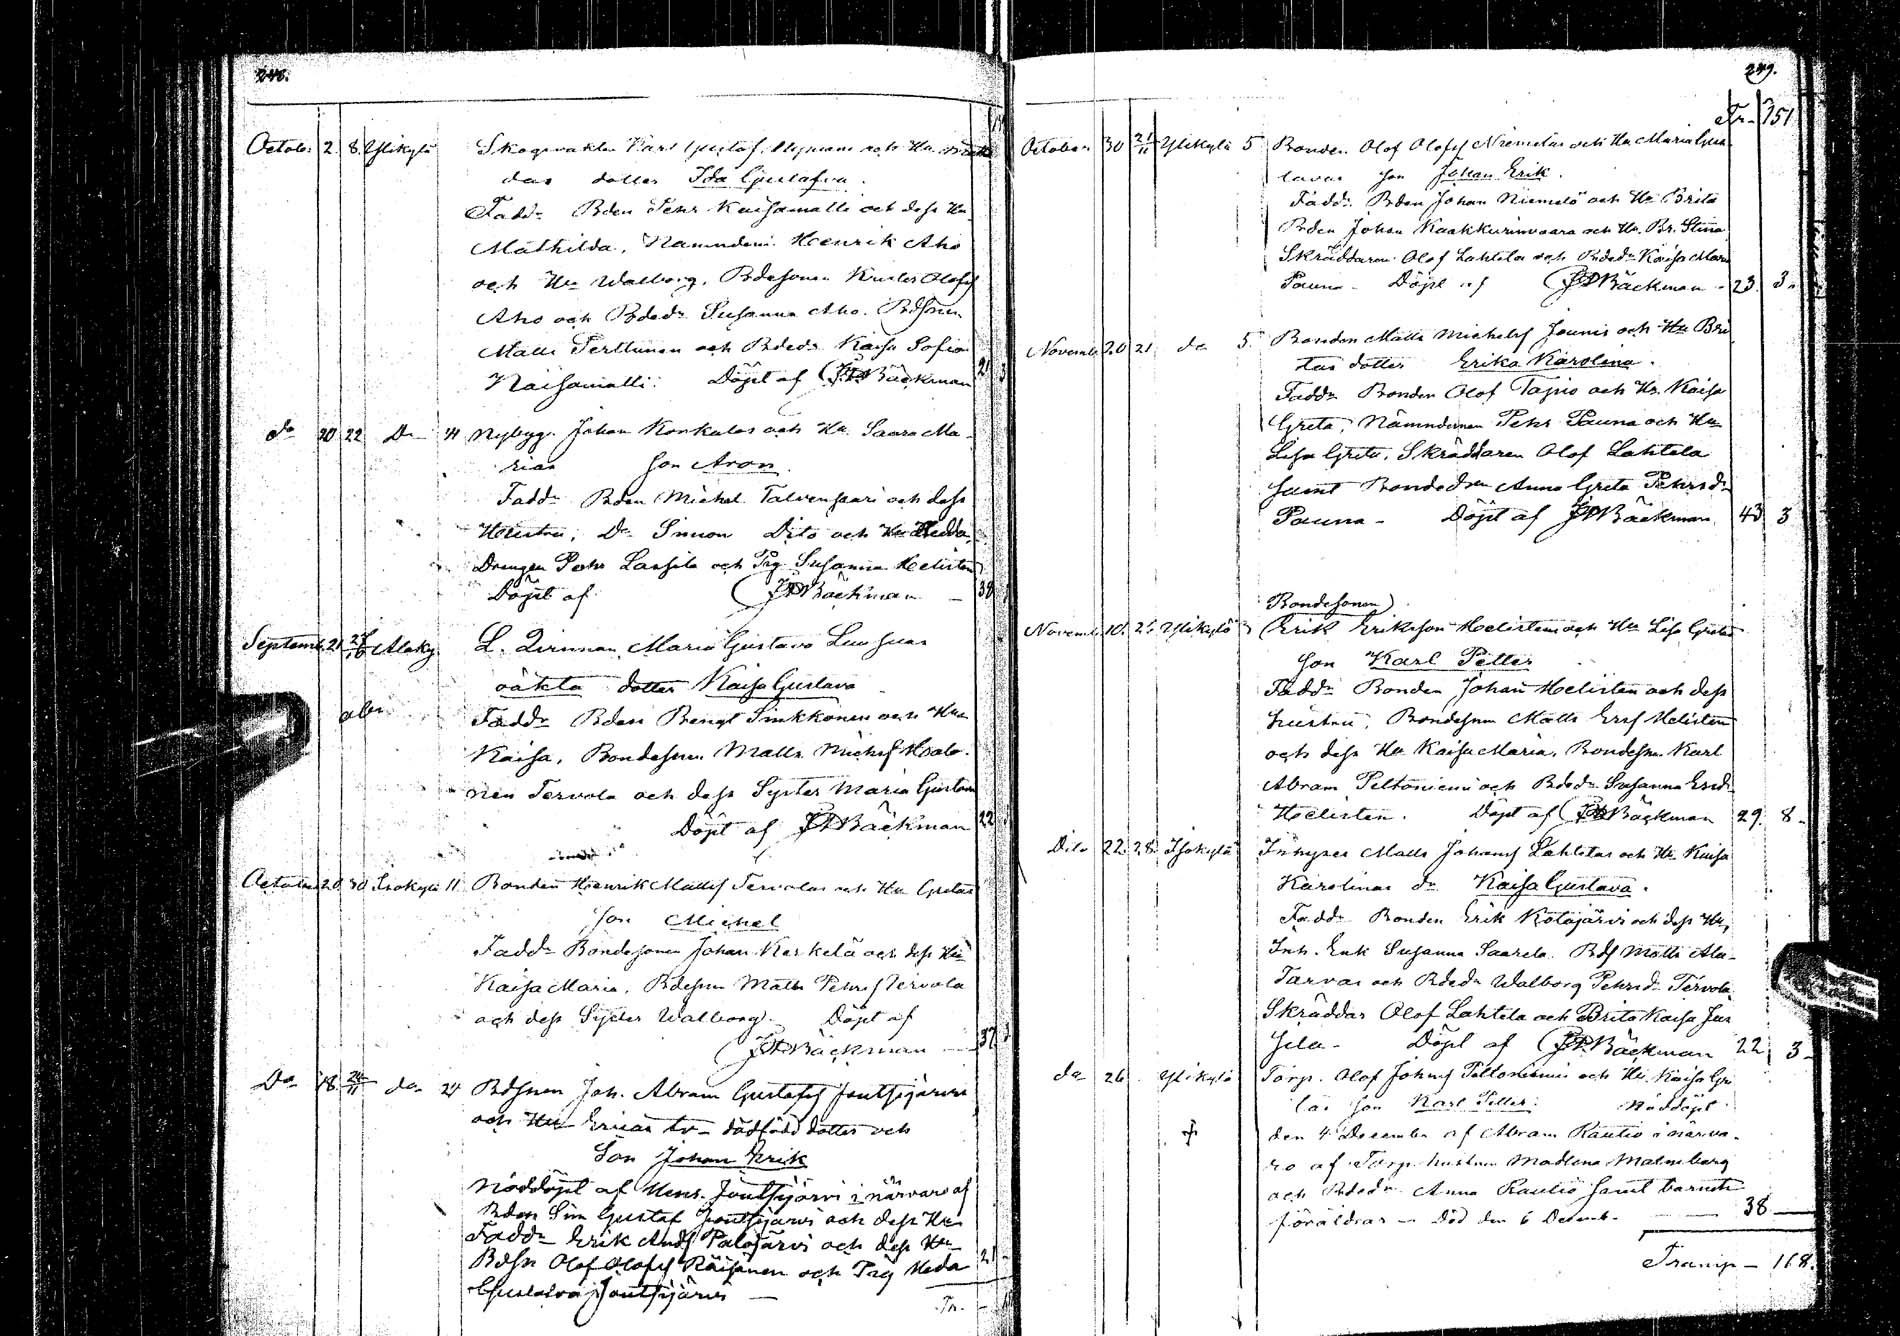 248.
October 2 8 Ylikylä Skogvakten Karl Gustaf och Hu
das dotter Ida Gustafva.
Fadd. Bden Pehr Kaisamatti och dess Hu
Mathilda, Nämndem. Henrik Aho
och Hu Walborg, Bdesonen Krister Olofss
Aho och Bdedr Susanna Aho. Bdsonen
Matts Perttunen och Bdedr Kaisa Sofia
Kaisamatti. Döpt af JFBäckman 21
do 20 22 Do 41 Nybygg. Johan Konkolas och Hu. Saara Ma-
rias Son Aron.
Fadd. Bden Michel Talvensaari och dess
Hustru, Do Simon Dito och Hu Hedda,
Drengen Pehr Lassila och Pig. Susanna Helisten
Döpt af JFBäckman 38
Septemb. 21 Alaky L. Qvinnan Maria Gustava
oäkta dotter Kaisa Gustava
Fadd. Bden Bengt Sinkkonen och Hu
Kaisa, Bondesonen Matts Michelss
nen Tervola och dess Syster Maria Gustava
Döpt af JFBäckman 22
October 20 30 Isokylä 11 Bonden Henrik Mattss Tervolas och Hu Gretas
Son Michel
Fadd. Bondesonen Johan Kerkelä och dess Hu
Kaisa Maria, Bdesonen Matts Pehrss Tervola
och dess Syster Walborg. Döpt af
JFBäckman 37
Do 18 24/11 do 24 Bdsonen Joh. Abram Gustafss Joutsijärvi
och Hu Ericas tv dödfödd dotter och
Son Johan Erik
Nöddöpt af Hens. Joutsijärvi i närvaro af
Bden Sim Gustaf Joutsijärvi och dess Hu
Fadd. Erik Andss Palojärvi och dess Hu
Bdsn Olof Olofss Räisänen och Pig Heda
Gustava Joutsijärvi 21
Tr.
249.
Tr. 151
October 30 21/11 Ylikylä 5 Bonden Olof Olofss Niemeläs och Hu Maria Gus
tavas son Johan Erik.
Fadd. Bden Johan Niemelä och Hu Brita
Bden Johan Kaakkurinvaara och Hu. Br. Stina
Skräddaren Olof Lahtela och Bdedr Kaisa Maria
Pauna. Döpt af JFBäckman 23. 3.
November 20 21 do 5. Bonden Matts Michelss Jounis och Hu Bri
tas dotter Erika Karolina.
Fadd. Bonden Olof Tapio och Hu. Kaisa
Greta, Nämndeman Pehr Pauna och Hu
Lisa Greta, Skräddaren Olof Lahtela
samt Bondedn Anna Greta Pehrsdr
Pauna. Döpt af JFBäckman 43 3
Bondesonen
Novemb. 10. Ylikylä Erik Eriksson Helistens och Hu Lisa Gretas
Son Karl Petter
Fadd. Bonden Johan Helisten och dess
hustru, Bondeson Matts Erss Helisten
och dess Hu Kaisa Maria, Bondeson Karl
Abram Peltoniemi och Bdedr Susanna Ersdr
Helisten. Döpt af JFBäckman 29. 8.
Dito 22. 28. Isokylä Inhyses Matts Johanss Lahtelas och Hu Kaisa
Karolinas dr Kaisa Gustava.
Fadd. Bonden Erik Kotajärvi och dess Hu,
Inh. Enk Susanna Saarela. Bds Matts Ala-
Tarvas och Bdedr Walborg Pehrsdr Tervola,
Skräddar Olof Lahtela och Brita Kaisa Jun
sila. Döpt af JFBäckman 22 3
do 26 Ylikylä Torp. Olof Johnss Peltoniemis och Hu. Kaisa Gre
tas son Karl Petter. Nöddöpt
den 4 December af Abram Rautio i närva-
ro af Torp. hustrun Madlena Malmberg
och Bdedr Anna Rautio samt barnets
föräldrar. Död den 6 Decemb. 38
Transp. 168.